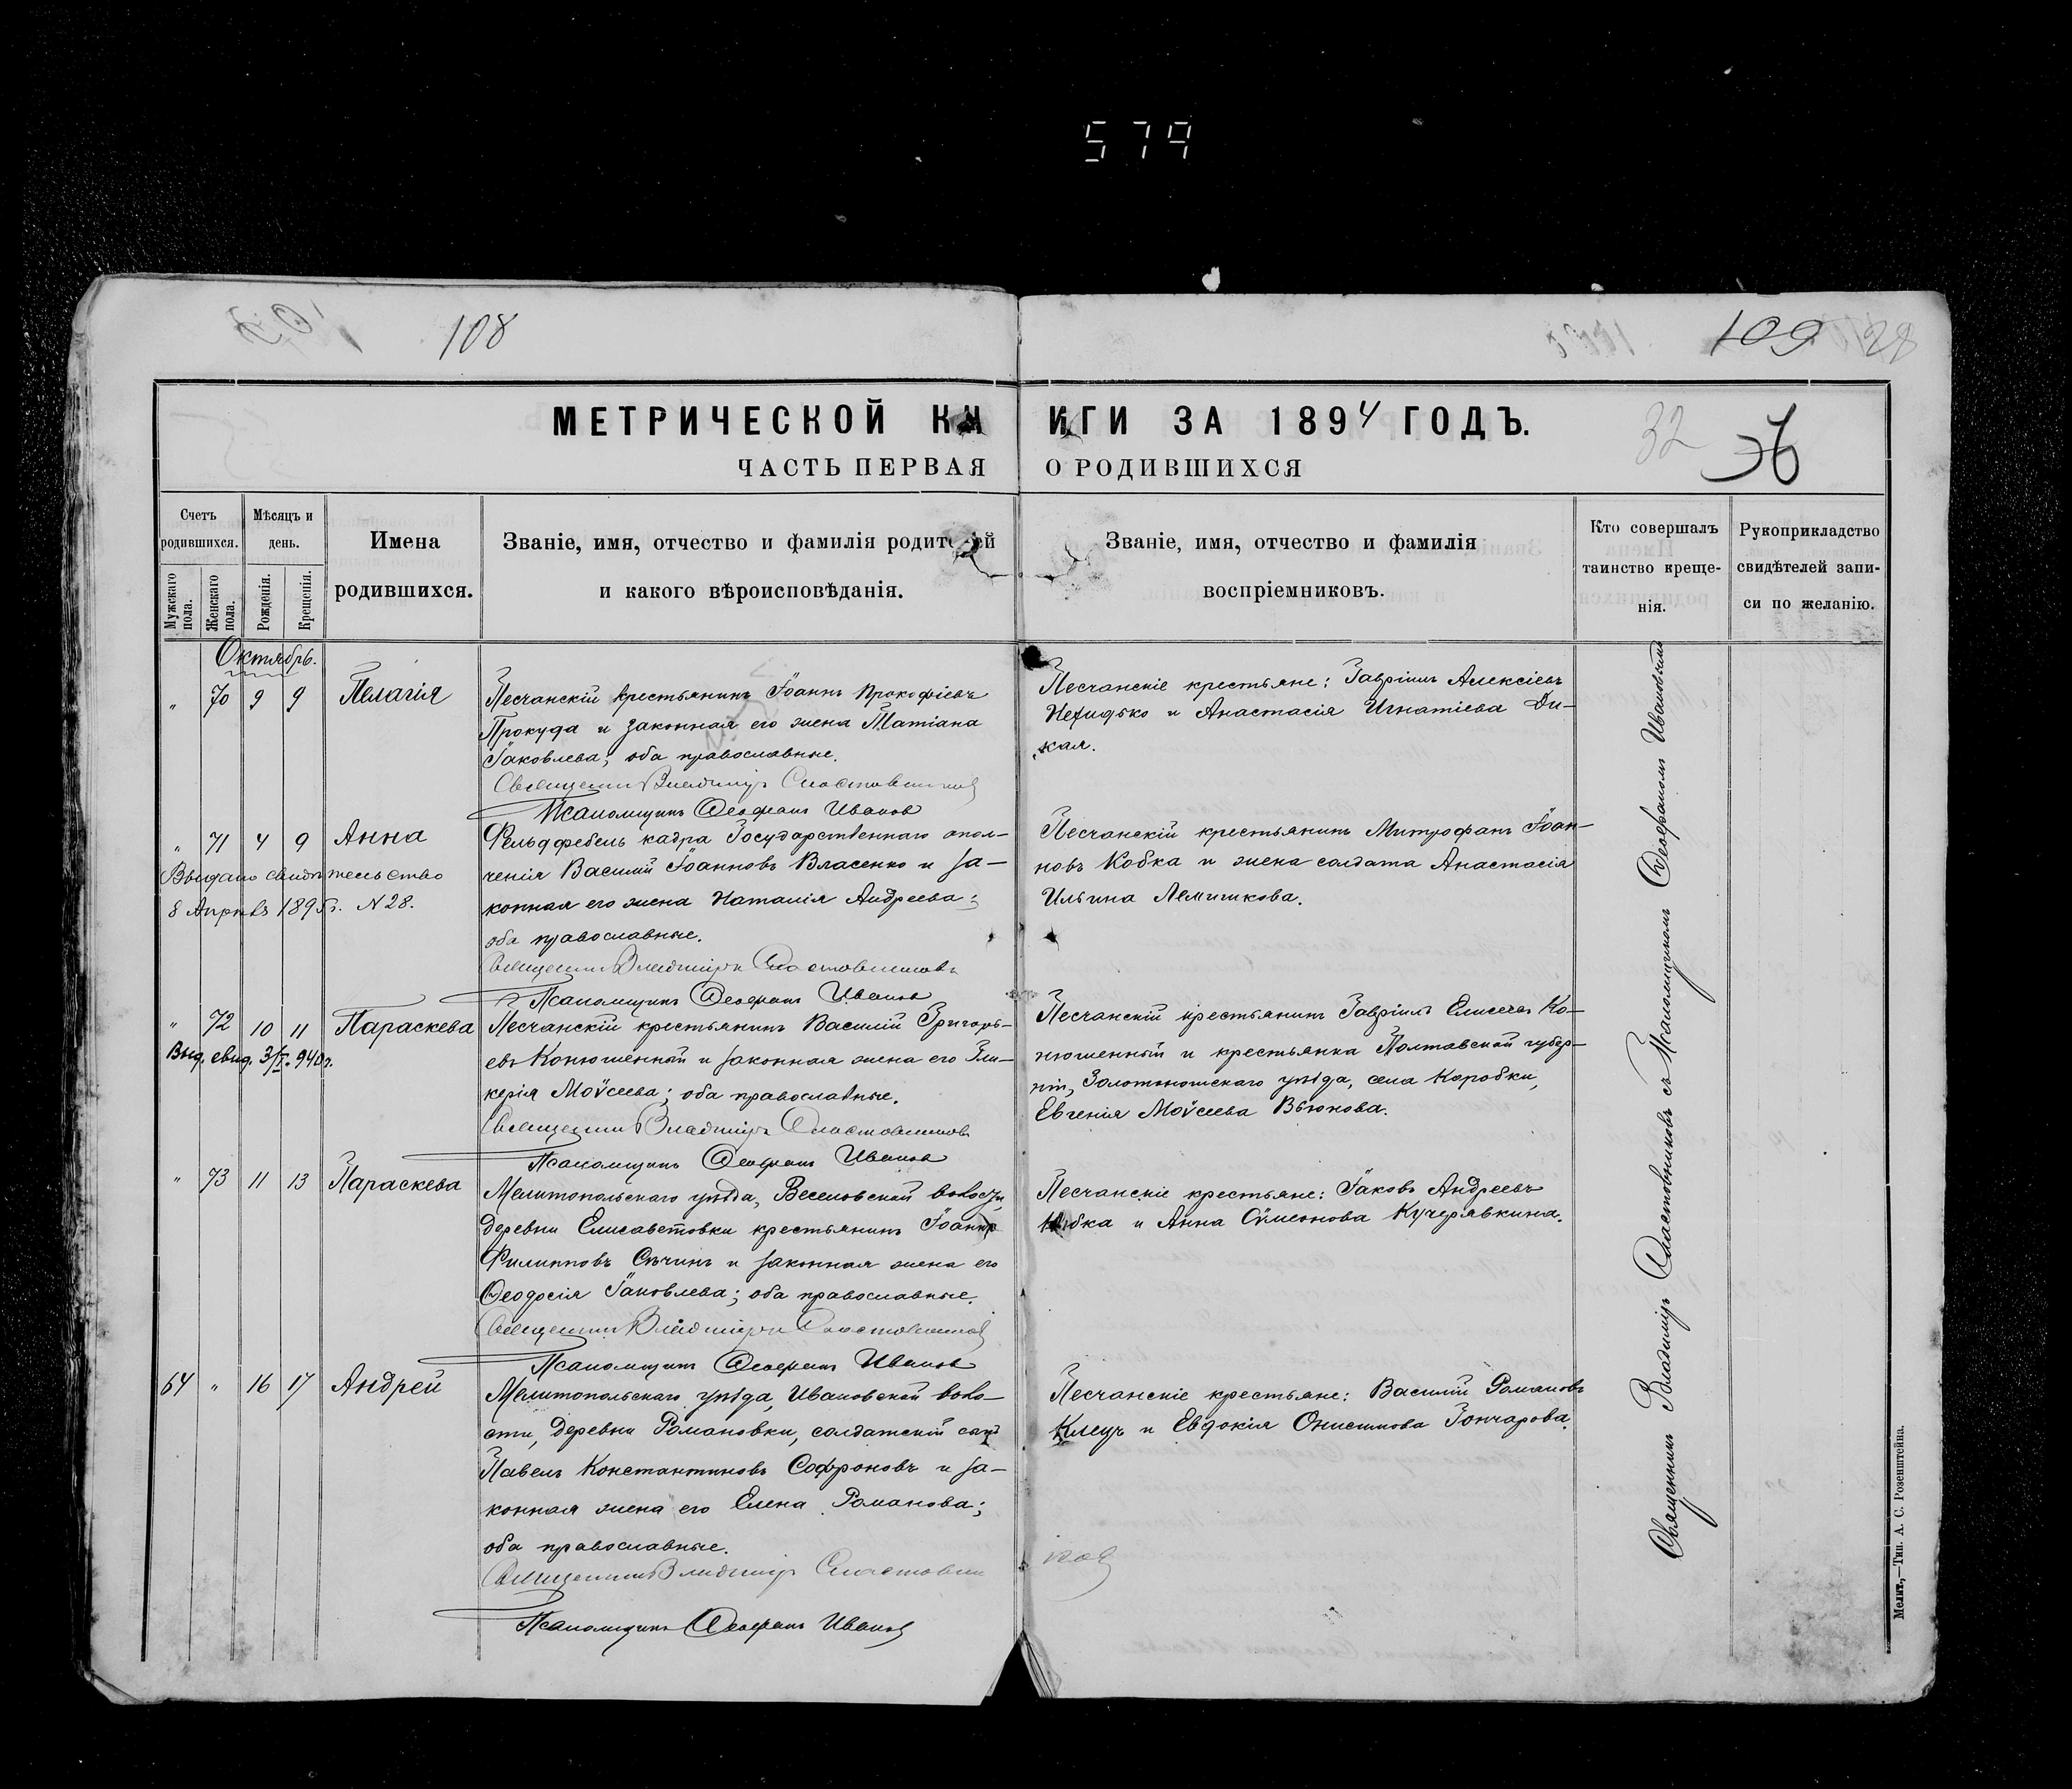 579
108
109
28
МЕТРИЧЕСКОЙ КН
ИГИ ЗА 1894 ГОДЪ.
32
36
ЧАСТЬ ПЕРВАЯ
О РОДИВШИХСЯ
Счетъ родившихся.
Мужскаго пола.
Женскаго пола.
Мѣсяцъ и день.
Рожденія.
Крещенія.
Имена
родившихся.
Званіе, имя, отчество и фамилія родителей
и какого вѣроисповѣданія.
Званіе, имя, отчество и фамилія
воспріемниковъ.
Кто совершалъ
таинство креще-
нія.
Рукоприкладство
свидѣтелей запи-
си по желанію.
Октябрь.
" 70 9 9 Пелагія
Песчанскій крестьянинъ Іоаннъ Прокофіевъ
Прокуда и законная его жена Татіана
Іаковлева; оба православные.
Священникъ Владиміръ Сластовниковъ
Псаломщикъ Ѳеофанъ Ивановъ
Песчанскіе крестьяне: Гавріилъ Алексіевъ
и Анастасія Игнатіева Ди-
кая.
" 71 4 9 Анна
Выдано свидѣтельство
8 Апрѣля 1895 г. N 28.
Фельдфебель кадра Государственнаго опол-
ченія Василій Іоанновъ Власенко и за-
конная его жена Наталія Андреева;
оба православные.
Священникъ Владиміръ Сластовниковъ
Псаломщикъ Ѳеофанъ Ивановъ
Песчанскій крестьянинъ Митрофанъ Іоан-
новъ Кобка и жена солдата Анастасія
Ильина Лемишкова.
" 72 10 11 Параскева
Выд. свид. 940 г.
Песчанскій крестьянинъ Василій Григорь-
евъ Конюшенный и законная жена его Гли-
керія Моѵсеева; оба православные.
Священникъ Владиміръ Сластовниковъ
Псаломщикъ Ѳеофанъ Ивановъ
Песчанскій крестьянинъ Гавріилъ Елисеевъ Ко-
нюшенный и крестьянка Полтавской губер-
ніи, Золотоношскаго уѣзда, села Коробки,
Евгенія Моѵсеева Вьюнова.
" 73 11 13 Параскева
Мелитопольскаго уѣзда, Веселовской волости,
деревни Елисаветовки крестьянинъ Іоаннъ
Филипповъ Сѣчинъ и законная жена его
Ѳеодосія Іаковлева; оба православные.
Священникъ Владиміръ Сластовниковъ
Псаломщикъ Ѳеофанъ Ивановъ
Песчанскіе крестьяне: Іаковъ Андреевъ
и Анна Сѵмеонова Кучерявкина.
64 " 16 17 Андрей
Мелитопольскаго уѣзда, Ивановской воло-
сти, деревни Романовки, солдатскій сынъ
Павелъ Константиновъ Софроновъ и за-
конная жена его Елена Романова;
оба православные.
Священникъ Владиміръ Сластовни
ковъ
Псаломщикъ Ѳеофанъ Ивановъ
Песчанскіе крестьяне: Василій Романовъ
Клецъ и Евдокія Онисимова Гончарова.
Священникъ Владиміръ Сластовниковъ съ Псаломщикомъ Ѳеофаномъ Ивановымъ
Мелит.,—Тип. А. С. Розенштейна.